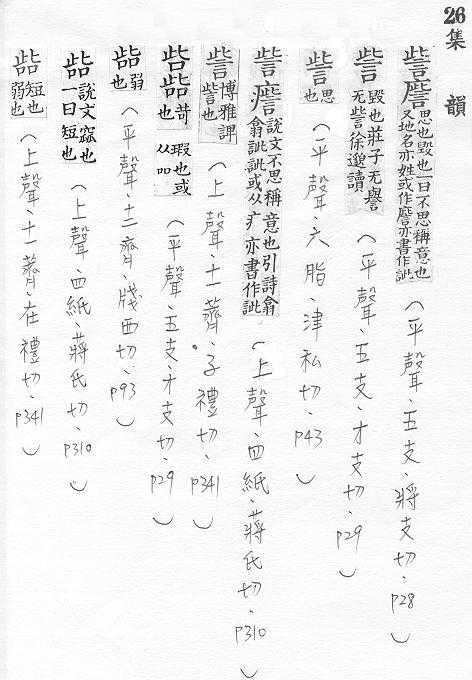 26集韻
訾䧳思也毀也一曰不思稱意也又地名亦姓或作䧳亦書作訿(平聲、五支、將支切、P28)
訾毀也莊子无譽无訾徐邈讀(平聲、五支、才支切、P29)
訾思也(平聲、六脂、津私切、P43)
訾說文不思稱意也引詩翕翕訿訿或从疒亦書作訿(上聲、四紙、蔣氏切、P310)
訾博雅諀訾也(上聲、十一薺、子禮切、P341)
呰㗗苛也瑕也或从吅(平聲、五支、才支切、P29)
㗗弱也(平聲、十二齊、牋西切、P93)
㗗說文窳也一曰短也(上聲、四紙、蔣氏切、P310)
㗗短也弱也(上聲、十一薺、在禮切、P341)